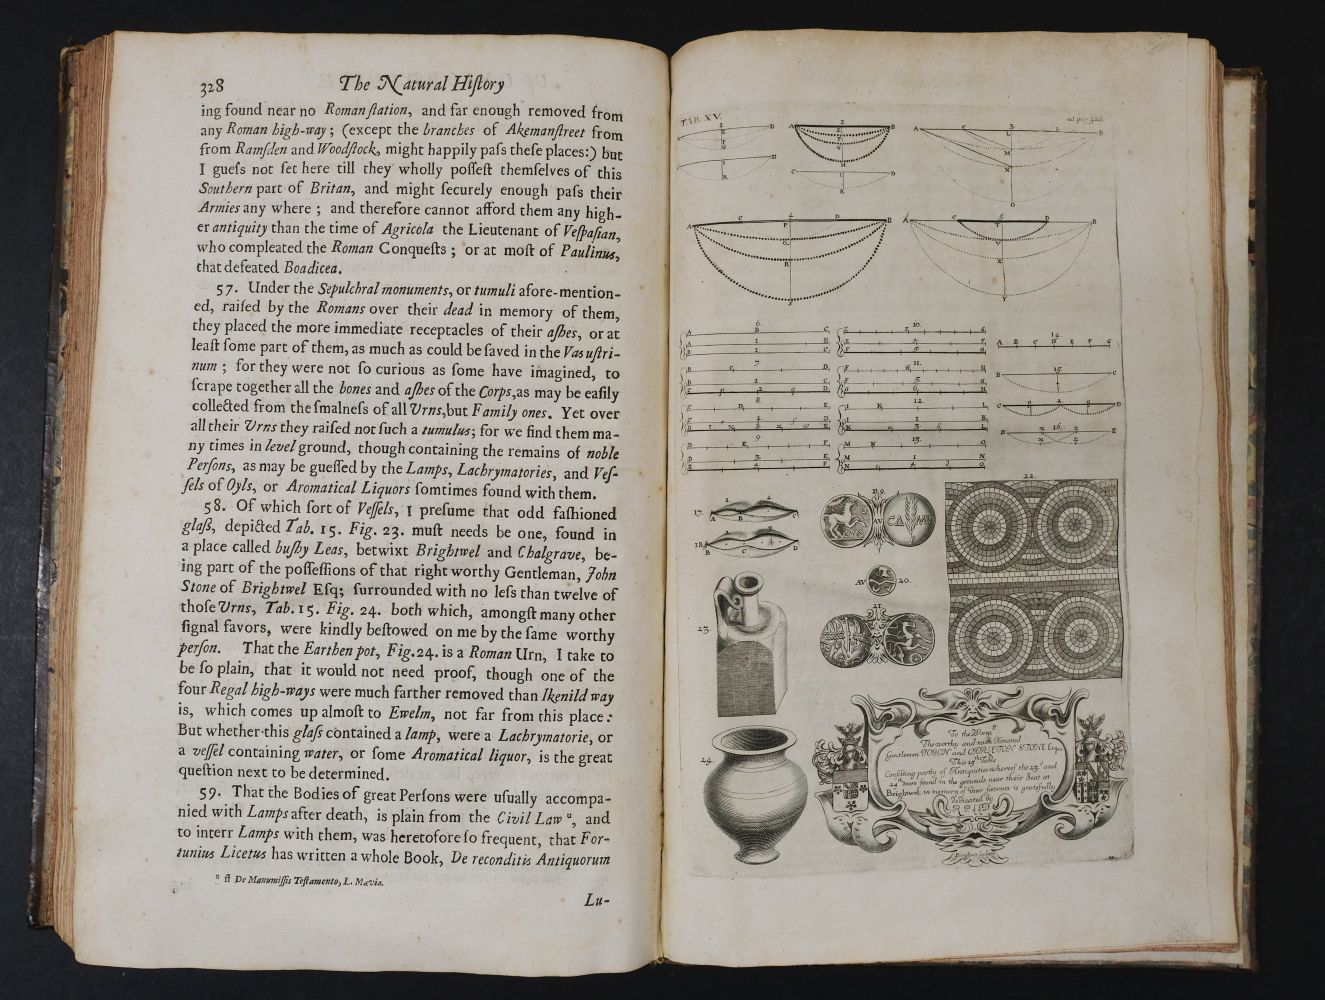 328 The Natural Hiſtory
ing found near no Roman ſtation, and far enough removed from
any Roman high-way; (except the branches of Akemanſtreet from
from Ramſden and Woodſtock, might happily paſs theſe places:) but
I gueſs not ſet here till they wholly poſſeſt themſelves of this
Southern part of Britan, and might ſecurely enough paſs their
Armies any where ; and therefore cannot afford them any high-
er antiquity than the time of Agricola the Lieutenant of Veſpaſian,
who compleated the Roman Conqueſts ; or at moſt of Paulinus,
that defeated Boadicea.
57. Under the Sepulchral monuments, or tumuli afore-mention-
ed, raiſed by the Romans over their dead in memory of them,
they placed the more immediate receptacles of their aſhes, or at
leaſt ſome part of them, as much as could be ſaved in the Vas uſtri-
num ; for they were not ſo curious as ſome have imagined, to
ſcrape together all the bones and aſhes of the Corps, as may be eaſily
collected from the ſmalneſs of all Vrns, but Family ones. Yet over
all their Vrns they raiſed not ſuch a tumulus; for we find them ma-
ny times in level ground, though containing the remains of noble
Perſons, as may be gueſſed by the Lamps, Lachrymatories, and Veſ-
ſels of Oyls, or Aromatical Liquors ſomtimes found with them.
58. Of which ſort of Veſſels, I preſume that odd faſhioned
glaß, depicted Tab. 15. Fig. 23. muſt needs be one, found in
a place called buſhy Leas, betwixt Brightwel and Chalgrave, be-
ing part of the poſſeſſions of that right worthy Gentleman, John
Stone of Brightwel Eſq; ſurrounded with no leſs than twelve of
thoſe Vrns, Tab. 15. Fig. 24. both which, amongſt many other
ſignal favors, were kindly beſtowed on me by the ſame worthy
perſon. That the Earthen pot, Fig. 24. is a Roman Urn, I take to
be ſo plain, that it would not need proof, though one of the
four Regal high-ways were much farther removed than Ikenild way
is, which comes up almoſt to Ewelm, not far from this place:
But whether this glaſs contained a lamp, were a Lachrymatorie, or
a veſſel containing water, or ſome Aromatical liquor, is the great
queſtion next to be determined.
59. That the Bodies of great Perſons were uſually accompa-
nied with Lamps after death, is plain from the Civil Law ⁿ, and
to interr Lamps with them, was heretofore ſo frequent, that For-
tunius Licetus has written a whole Book, De reconditis Antiquorum
ⁿ ff De Manumiſſis Teſtamento, L. Mævia.
Lu-
TAB. XV.
ad pag.
17.
18.
19.
AV 20.
21.
22.
23.
24.
To the Worp.
The worthy and much Honored
Gentlemen JOHN and CARLETON STONE Esq.
This 15th Table
Consisting partly of Antiquities whereof the 23. and
24th were found in the grounds near their Seat at
Brightwell, in memory of their favours is gratefully
dedicated by
R.P. LL.D.